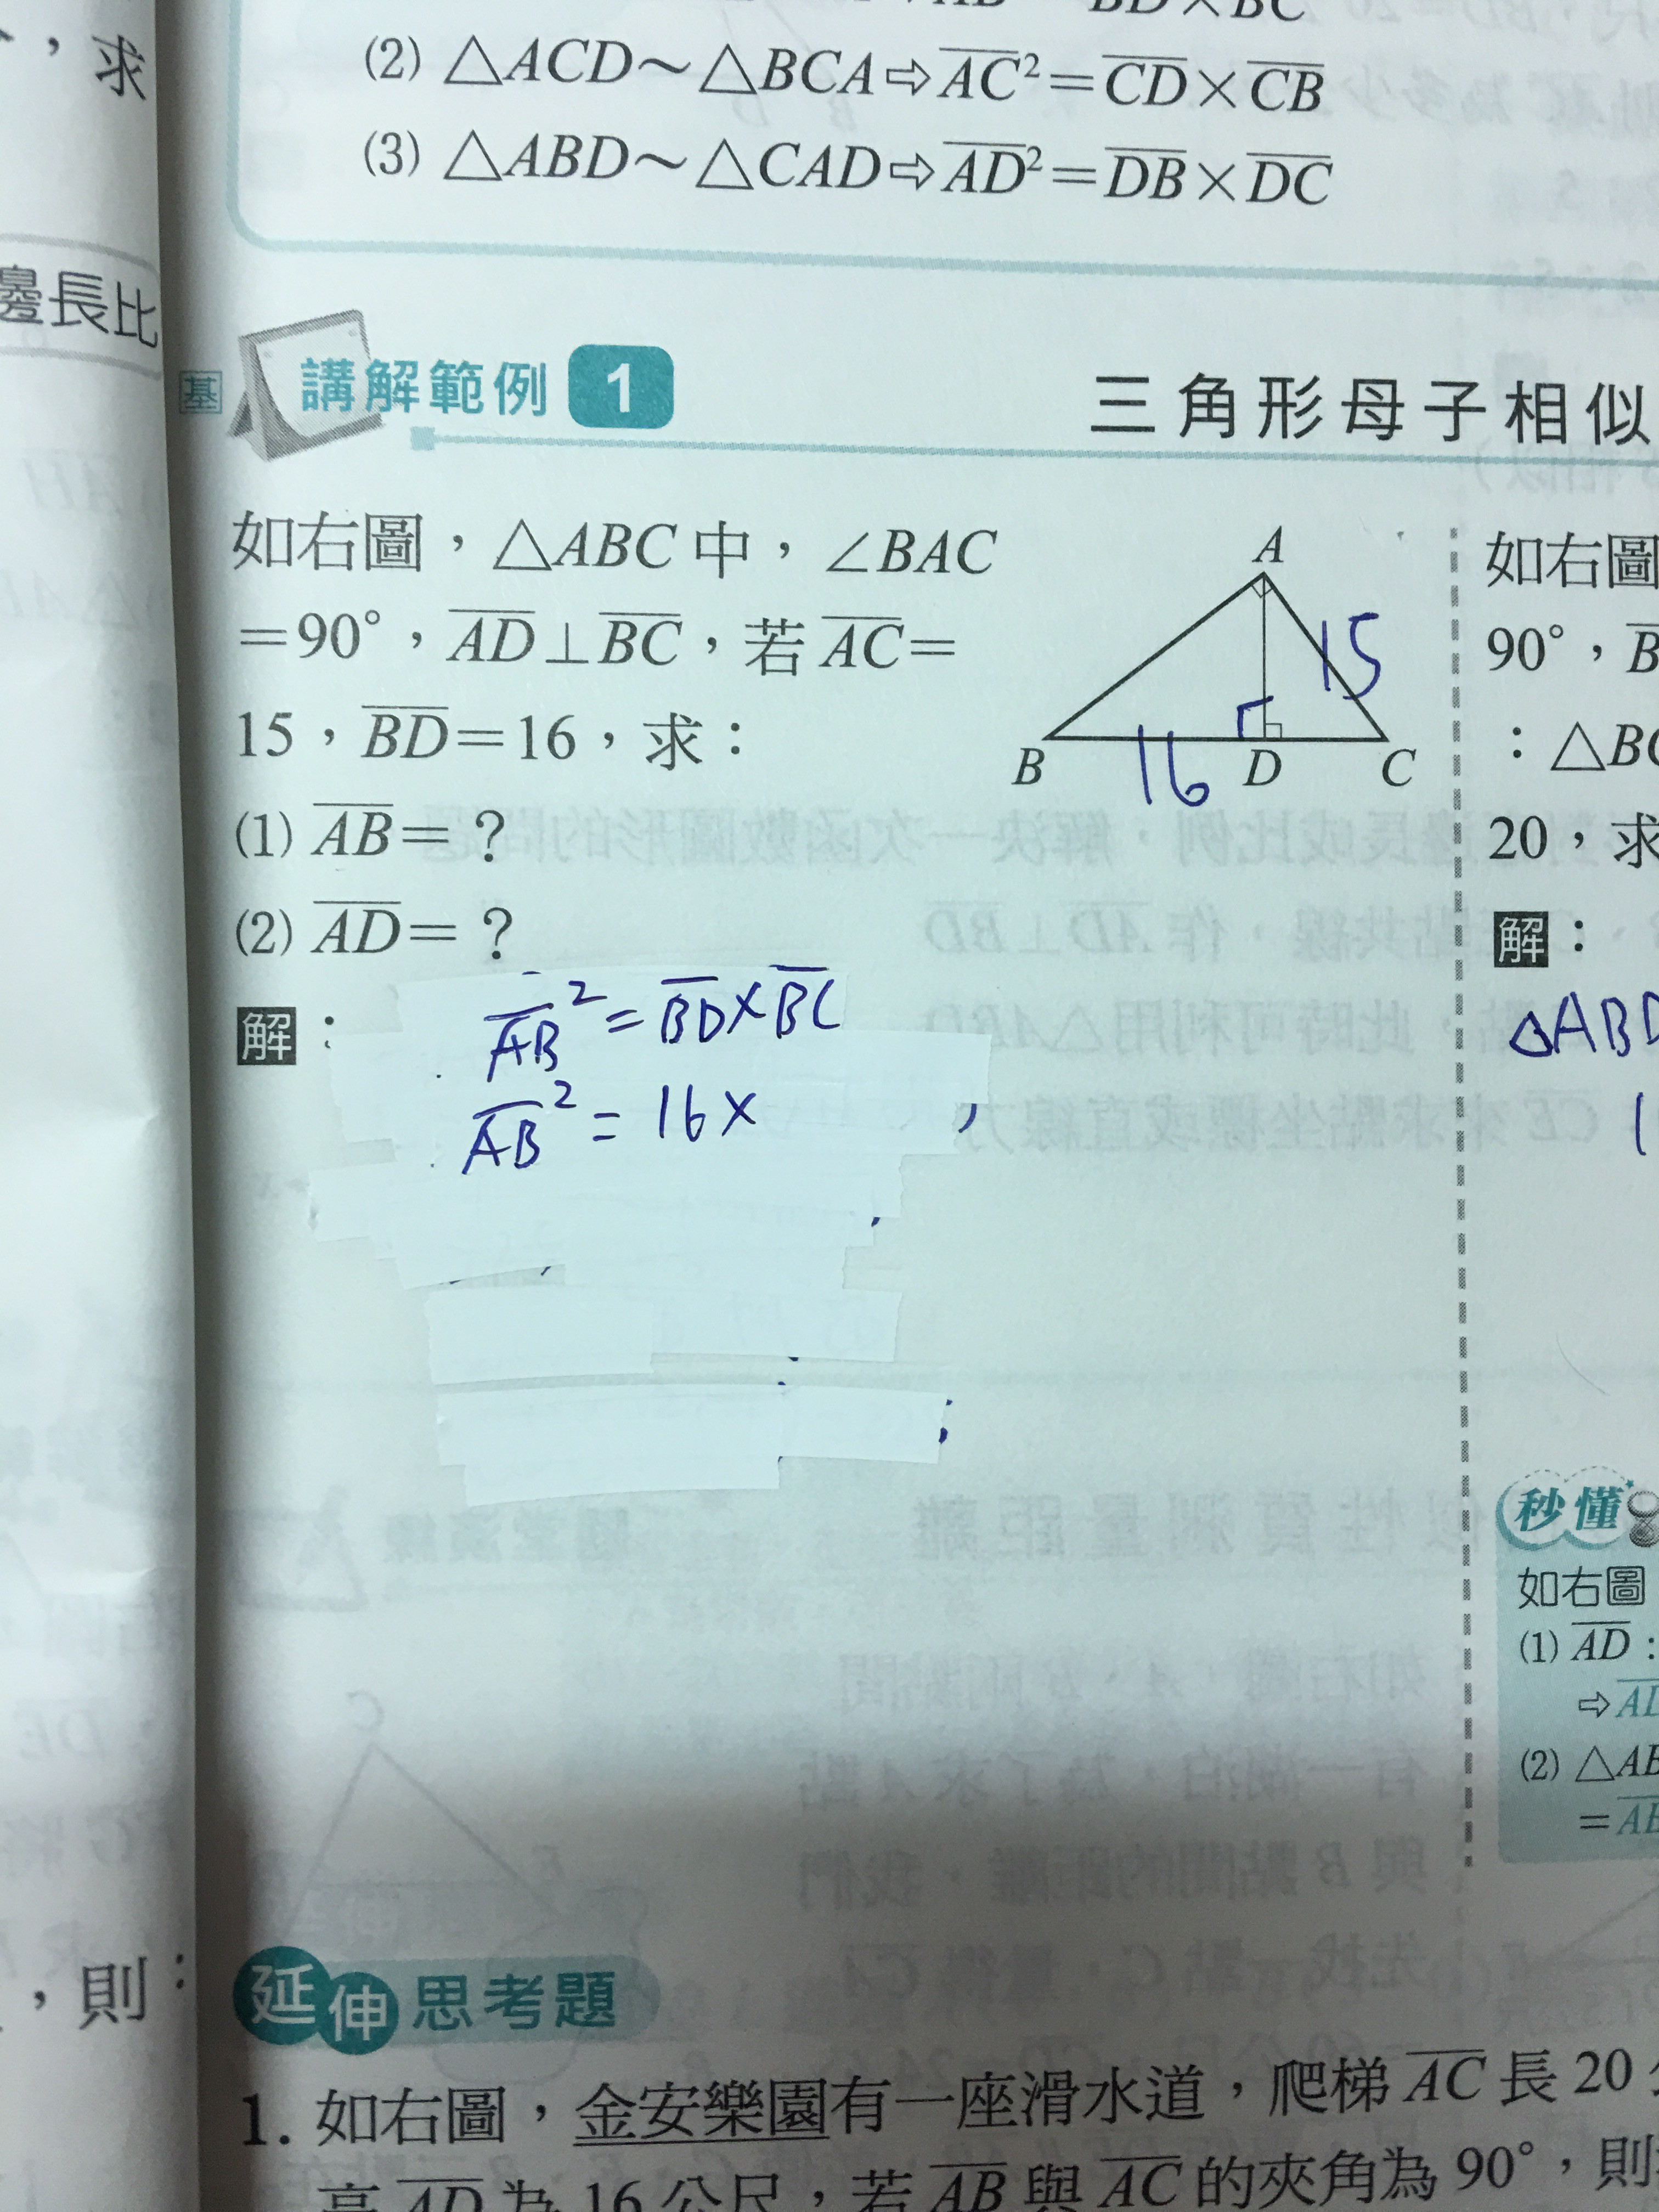 BD×BC
(2) △ACD～△BCA⇨AC²=CD×CB
(3) △ABD～△CAD⇨AD²=DB×DC
，求
邊長比
基 講解範例 1
三角形母子相似
如右圖，△ABC中，∠BAC
=90°，AD⊥BC，若AC=
15，BD=16，求：
(1) AB=？
(2) AD=？
A
15
B
16
D
C
解：
AB²=BD×BC
AB²=16×
如右圖
90°，B
：△BC
20，求
解：
△ABD
秒懂
如右圖
(1) AD：
⇨AD
(2) △AB
=AB
，則：
延伸思考題
1. 如右圖，金安樂園有一座滑水道，爬梯AC長20公
高AD為16公尺，若AB與AC的夾角為90°，則